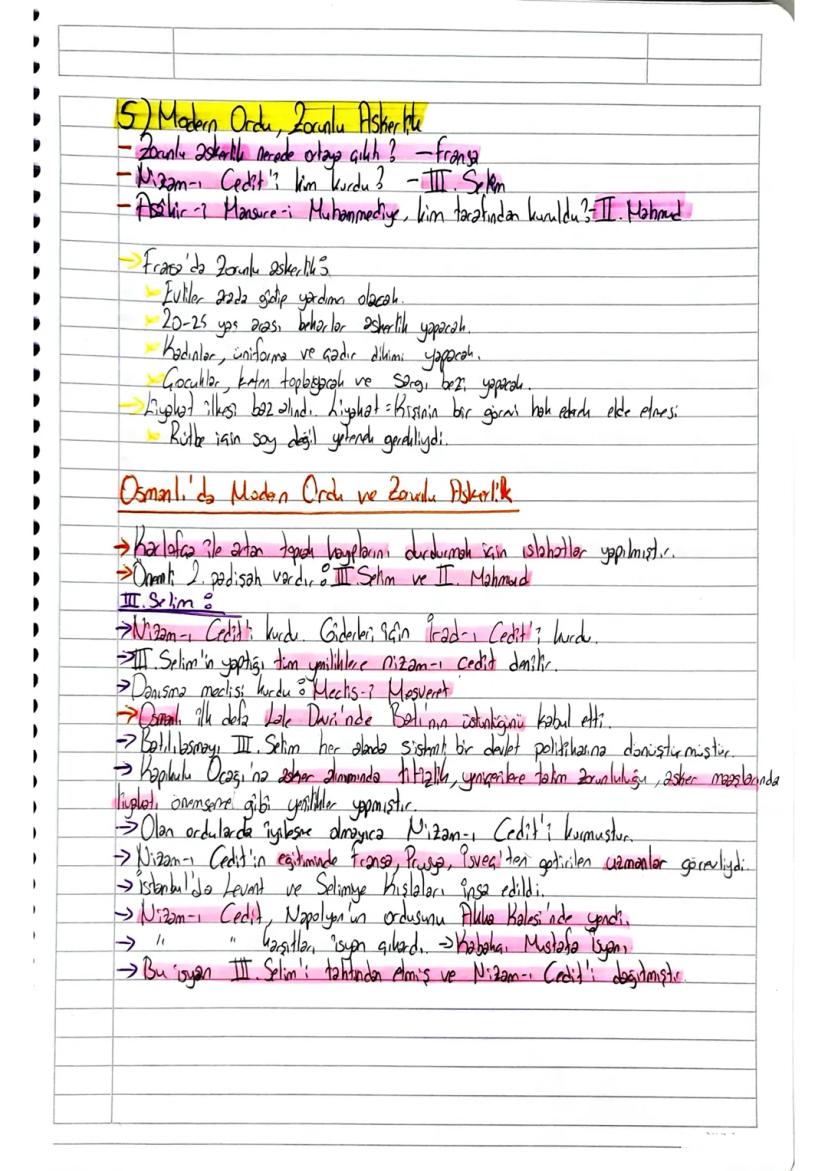 5) Modern Ordu, Zorunlu Askerlik
- Zorunlu askerlik nerede ortaya çıktı? - Fransa
- Nizam-ı Cedit'i kim kurdu? - III. Selim
- Asakir-i Mansure-i Muhammediye, kim tarafından kuruldu? - II. Mahmud
→ Fransa'da Zorunlu askerlik:
Evliler arada gidip yardımcı olacak.
20-25 yaş arası bekarlar askerlik yapacak.
Kadınlar, üniforma ve çadır dikimi yapacak.
Çocuklar, keten toplayacak ve sargı bezi yapacak.
→ Liyakat ilkesi baz alındı. Liyakat = Kişinin bir görevi hak ederek elde etmesi
Rütbe için soy değil yetenek gerekliydi.
Osmanlı'da Modern Ordu ve Zorunlu Askerlik
→ Karlofça ile artan toprak kayıplarını durdurmak için ıslahatlar yapılmıştır.
→ Önemli 2 padişah vardır: III. Selim ve II. Mahmud
III. Selim:
→ Nizam-ı Cedit'i kurdu. Giderleri için İrad-ı Cedit'i kurdu.
→ III. Selim'in yaptığı tüm yeniliklere nizam-ı cedit denilir.
→ Danışma meclisi kurdu: Meclis-i Meşveret
→ Osmanlı ilk defa Lale Devri'nde Batı'nın üstünlüğünü kabul etti.
→ Batılılaşmayı III. Selim her alanda sistemli bir devlet politikasına dönüştürmüştür.
→ Kapıkulu Ocağı'na asker alımında titizlik, yeniçerilere talim zorunluluğu, asker maaşlarında
liyakatı önemseme gibi yenilikler yapmıştır.
→ Olan ordularda iyileşme olmayınca Nizam-ı Cedit'i kurmuştur.
→ Nizam-ı Cedit'in eğitiminde Fransa, Prusya, İsveç'ten getirilen uzmanlar görevliydi.
→ İstanbul'da Levent ve Selimiye Kışlaları inşa edildi.
→ Nizam-ı Cedit, Napolyon'un ordusunu Akka Kalesi'nde yendi.
→ " " karşıtları isyan çıkardı. → Kabakçı Mustafa İsyanı
→ Bu isyan III. Selim'i tahtından etmiş ve Nizam-ı Cedit'i dağıtmıştır.